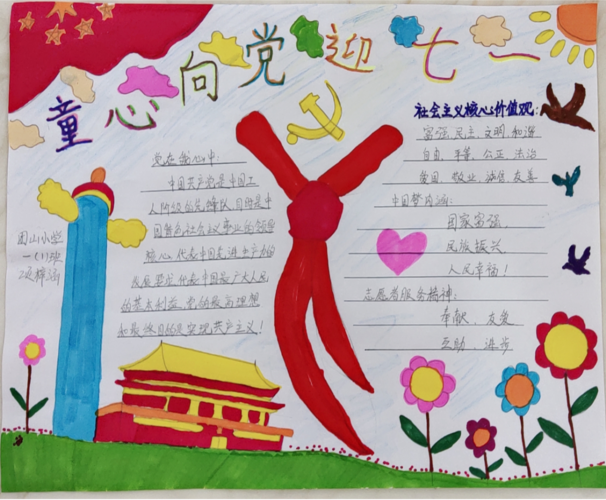 童心向党迎七一
党在我心中:
中国共产党是中国工
人阶级的先锋队,目的是中
国特色社会主义事业的领导
核心,代表中国先进生产力的
发展要求,代表中国最广大人民
的基本利益,党的最高理想
和最终目的是实现共产主义!
团山小学
一(1)班
社会主义核心价值观:
富强、民主、文明、和谐
自由、平等、公正、法治
爱国、敬业、诚信、友善
中国梦内涵:
国家富强、
民族振兴
人民幸福!
志愿者服务精神:
奉献、友爱
互助、进步